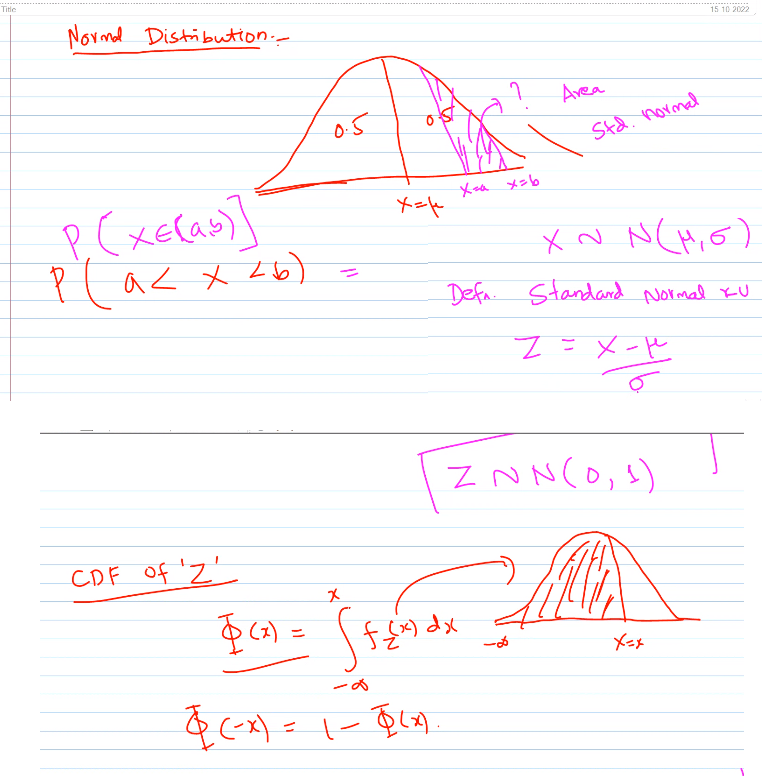 Title
15 10 2022
Normal Distribution:-
0.5 0.5 ? Area
Std. normal
X=μ X=a X=b
P(X∈(a,b)]
P(a< X <b) =
X ~ N(μ,σ)
Defn. Standard Normal r.v
Z = X-μ
σ
Z ~ N(0,1)
CDF of 'Z'
x
Φ(x) = ∫ f_Z(x) dx
-∞
-∞ X=x
Φ(-x) = 1 - Φ(x).